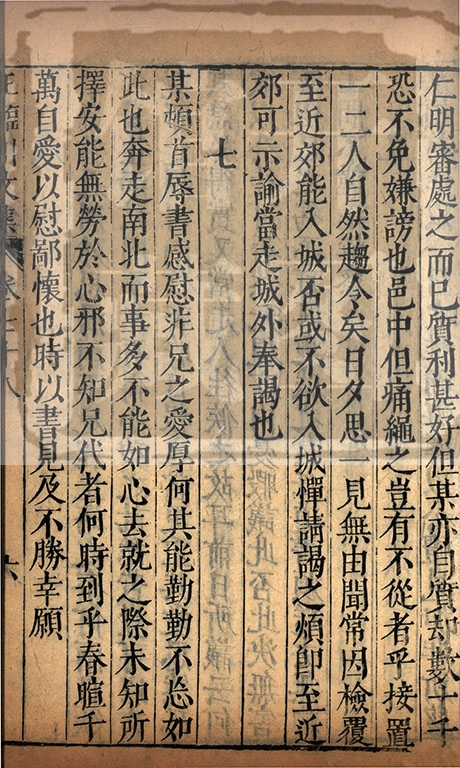 仁明審處之而已質利甚好但某亦自質却數十千
恐不免嫌謗也邑中但痛繩之豈有不從者乎接置
一二人自然趨令矣日夕思一見無由聞常因檢覆
至近郊能入城否或不欲入城憚請謁之煩即至近
郊可示諭當走城外奉謁也
七
某頓首辱書感慰非兄之愛厚何其能勤勤不忘如
此也奔走南北而事多不能如心去就之際未知所
擇安能無勞於心邪不知兄代者何時到乎春暄千
萬自愛以慰鄙懷也時以書見及不勝幸願
王臨川文集 卷七十八 六